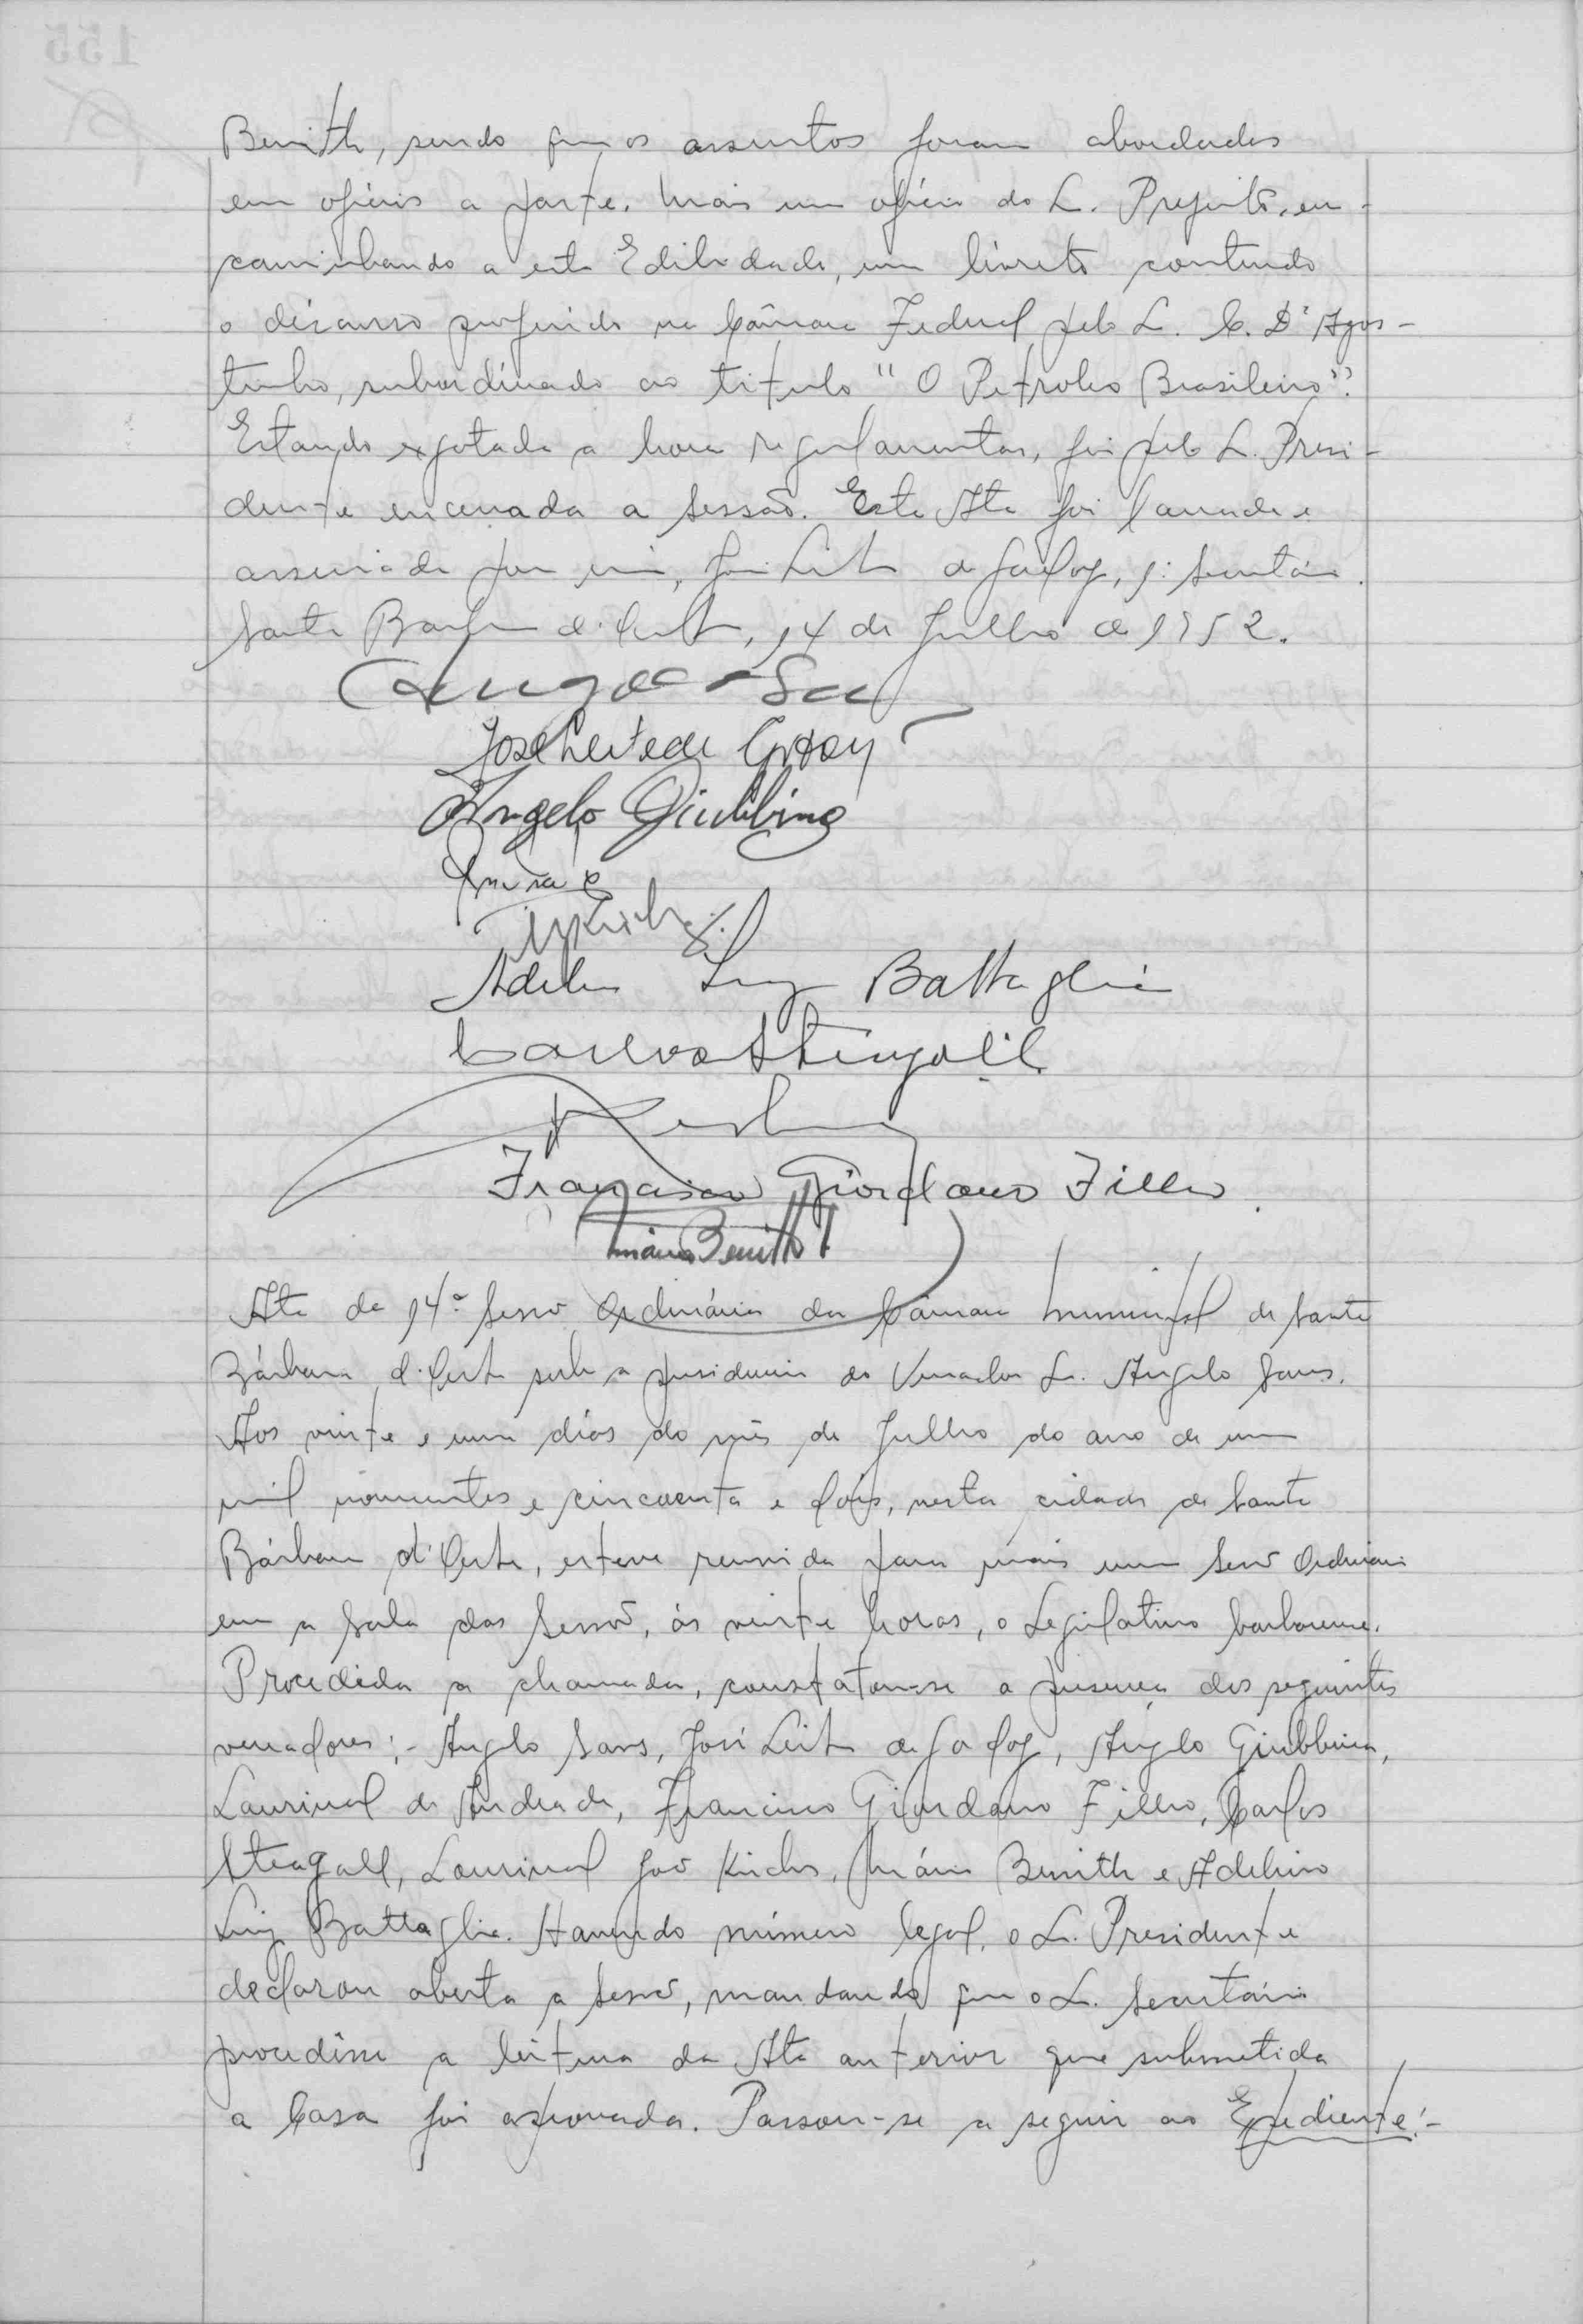 Benith, sendo que os assuntos foram abordados
em ofícios a parte. Mais um ofício do S. Prefeito, en-
caminhando a esta Edilidade, um livreto contendo
o discurso proferido na Câmara Federal pelo S. C. D'Agos-
tinho, subordinado ao titulo "O Petroleo Brasileiro".
Estando esgotada a hora regulamentar, foi pelo S. Presi-
dente encerrada a sessão. Esta Ata foi lavrada e
assinada por mim, José Leite de Godoy, 1º Secretário.
Santa Barbara d'Oeste, 14 de Julho de 1952.
José Leite de Godoy
Angelo Giubbina
Adelino Luiz Battaglia
Carlos Steagall
Francisco Giordano Filho
Mário Benith
Ata da 14ª Sessão Ordinária da Câmara Municipal de Santa
Bárbara d'Oeste sob a presidencia do Vereador S. Angelo Sans.
Aos vinte e um dias do mês de Julho do ano de um
mil novecentos e cincoenta e dois, nesta cidade de Santa
Bárbara d'Oeste, esteve reunida para mais uma Sessão Ordinária
em a Sala das Sessões, ás vinte horas, o Legislativo barbarense.
Procedida a chamada, constatou-se a presença dos seguintes
vereadores:- Angelo Sans, José Leite de Godoy, Angelo Giubbina,
Laurival de Andrade, Francisco Giordano Filho, Carlos
Steagall, Lourival José Kirche, Mário Benith e Adelino
Luiz Battaglia. Havendo número legal, o S. Presidente
declarou aberta a sessão, mandando que o S. Secretário
procedêsse a leitura da Ata anterior que submetida
a Casa foi aprovada. Passou-se a seguir ao Expediente:-